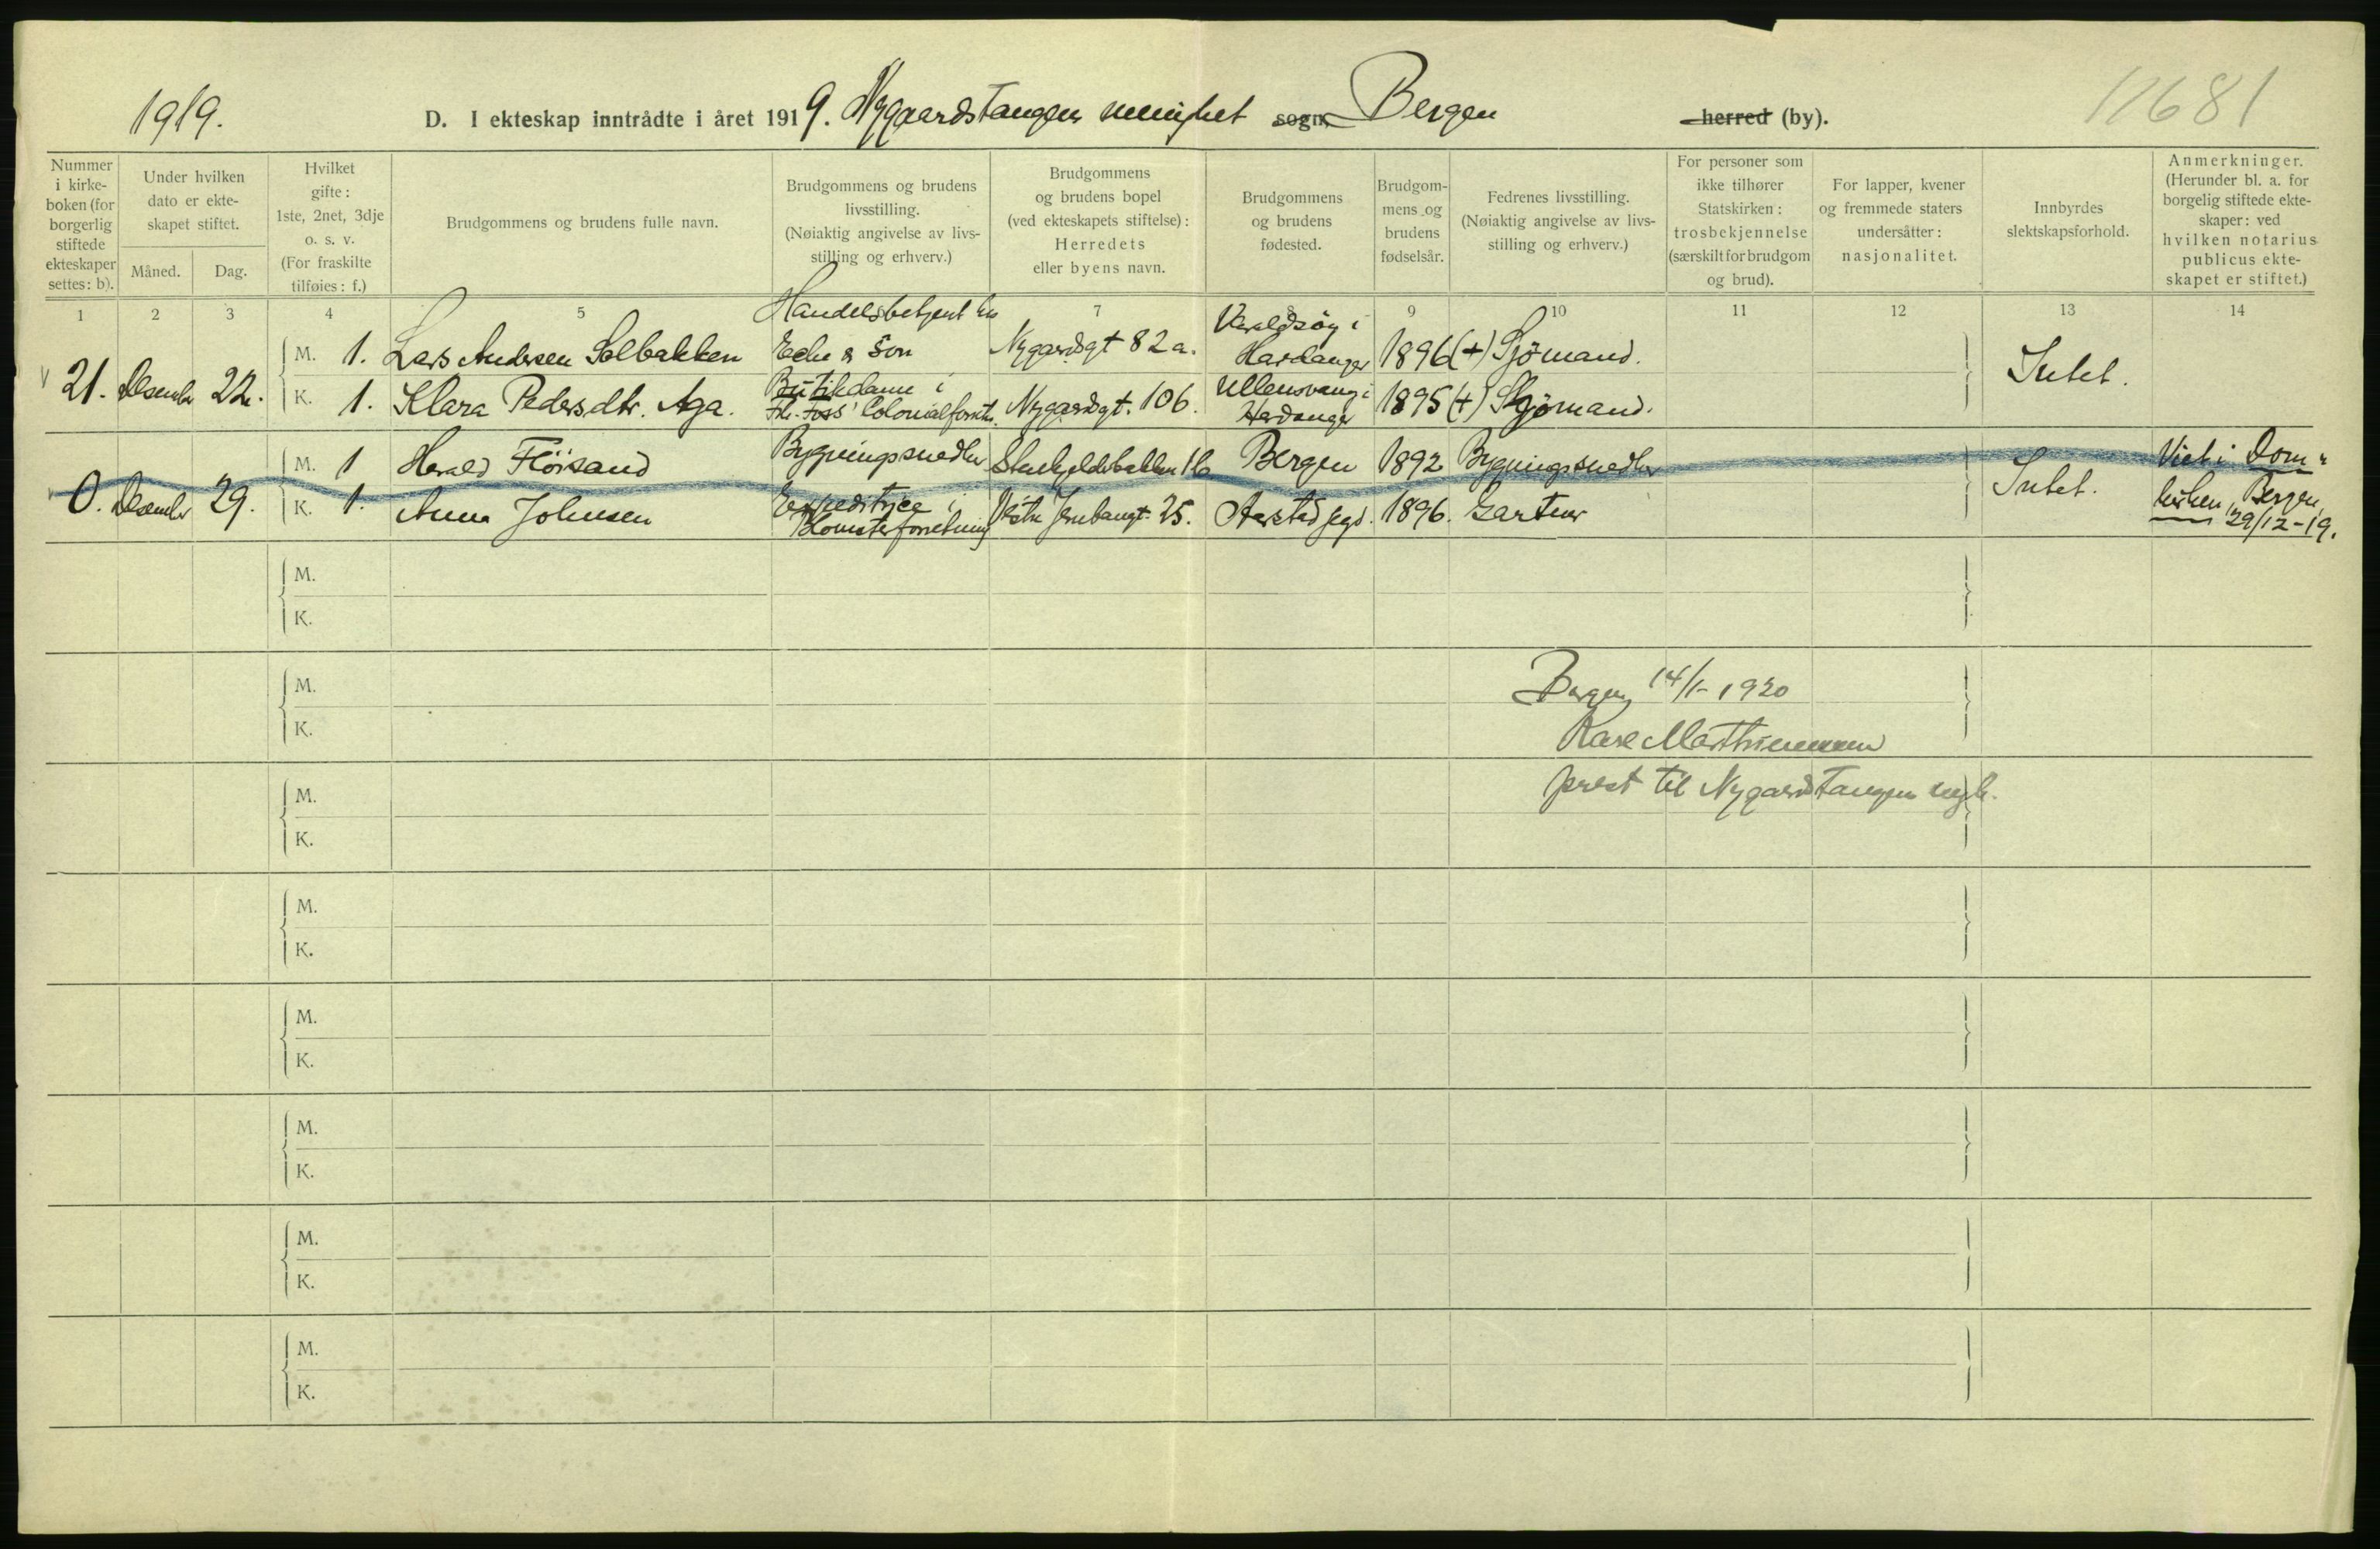 1919.
D. I ekteskap inntrådte i året 1919. Nygaardstangen menighet sogn, Bergen herred (by).
17681
Nummer
i kirke-
boken (for
borgerlig
stiftede
ekteskaper
settes: b).
Under hvilken
dato er ekte-
skapet stiftet.
Måned.
Dag.
Hvilket
gifte:
1ste, 2net, 3dje
o. s. v.
(For fraskilte
tilføies: f.)
Brudgommens og brudens fulle navn.
Brudgommens og brudens
livsstilling.
(Nøiaktig angivelse av livs-
stilling og erhverv.)
Brudgommens
og brudens bopel
(ved ekteskapets stiftelse):
Herredets
eller byens navn.
Brudgommens
og brudens
fødested.
Brudgom-
mens og
brudens
fødselsår.
Fedrenes livsstilling.
(Nøiaktig angivelse av livs-
stilling og erhverv.)
For personer som
ikke tilhører
Statskirken:
trosbekjennelse
(særskilt for brudgom
og brud).
For lapper, kvener
og fremmede staters
undersåtter:
nasjonalitet.
Innbyrdes
slektskapsforhold.
Anmerkninger.
(Herunder bl. a. for
borgelig stiftede ekte-
skaper: ved
hvilken notarius
publicus ekte-
skapet er stiftet.)
1 2 3 4 5 7 8 9 10 11 12 13 14
21. Desember 22.
M. 1. Lars Andersen Solbakken
Handelsbetjent hos
& Son
Nygardsgt 82 a.
Varaldsöy i
Hardanger
1896 (+) Sjömand.
Intet.
K. 1. Klara Pedersdtr. Aga.
Butikdame i
Foss' Colonialforretn.
Nygardsgt. 106.
Ullensvang i
Hardanger
1895 (+) Sjömand.
0. Desember 29.
M. 1 Harald Flöisand
Bygningssnedker
Stenkjeldebakken 16
Bergen 1892 Bygningssnedker
Intet.
Viet i Dom-
kirken, Bergen,
29/12-19.
K. 1. Anna Johnsen
Expeditrice i
Blomsterforretning
Vestre Jernbanegt. 25.
Aarstad sogn. 1896. Gartner
M.
K.
M.
K.
Bergen 14/1-1920
Kare Marthinussen
prest til Nygaardstangen mgh.
M.
K.
M.
K.
M.
K.
M.
K.
M.
K.
M.
K.